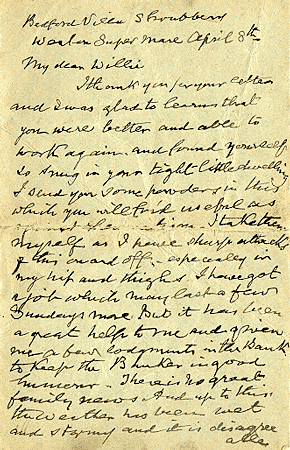 Bedford Villa Shrubbery
Weston Super Mare April 8th
My dear Willie
I thank you for your letter
and I was glad to learn that
you were better and able to
work again and found yourself
so snug in your tight little dwelling
I send you some powders in this
which you will find useful as
I take them
myself as I have sharp attacks
of this on and off - especially in
my hip and thighs. I have got
a job which may last a few
Sundays more But it has been
a great help to me and given
me a few lodgments in the Bank
to keep the Banker in good
humour - There is no great
family news. And up to this
the weather has been wet
and stormy and it is disagree
able